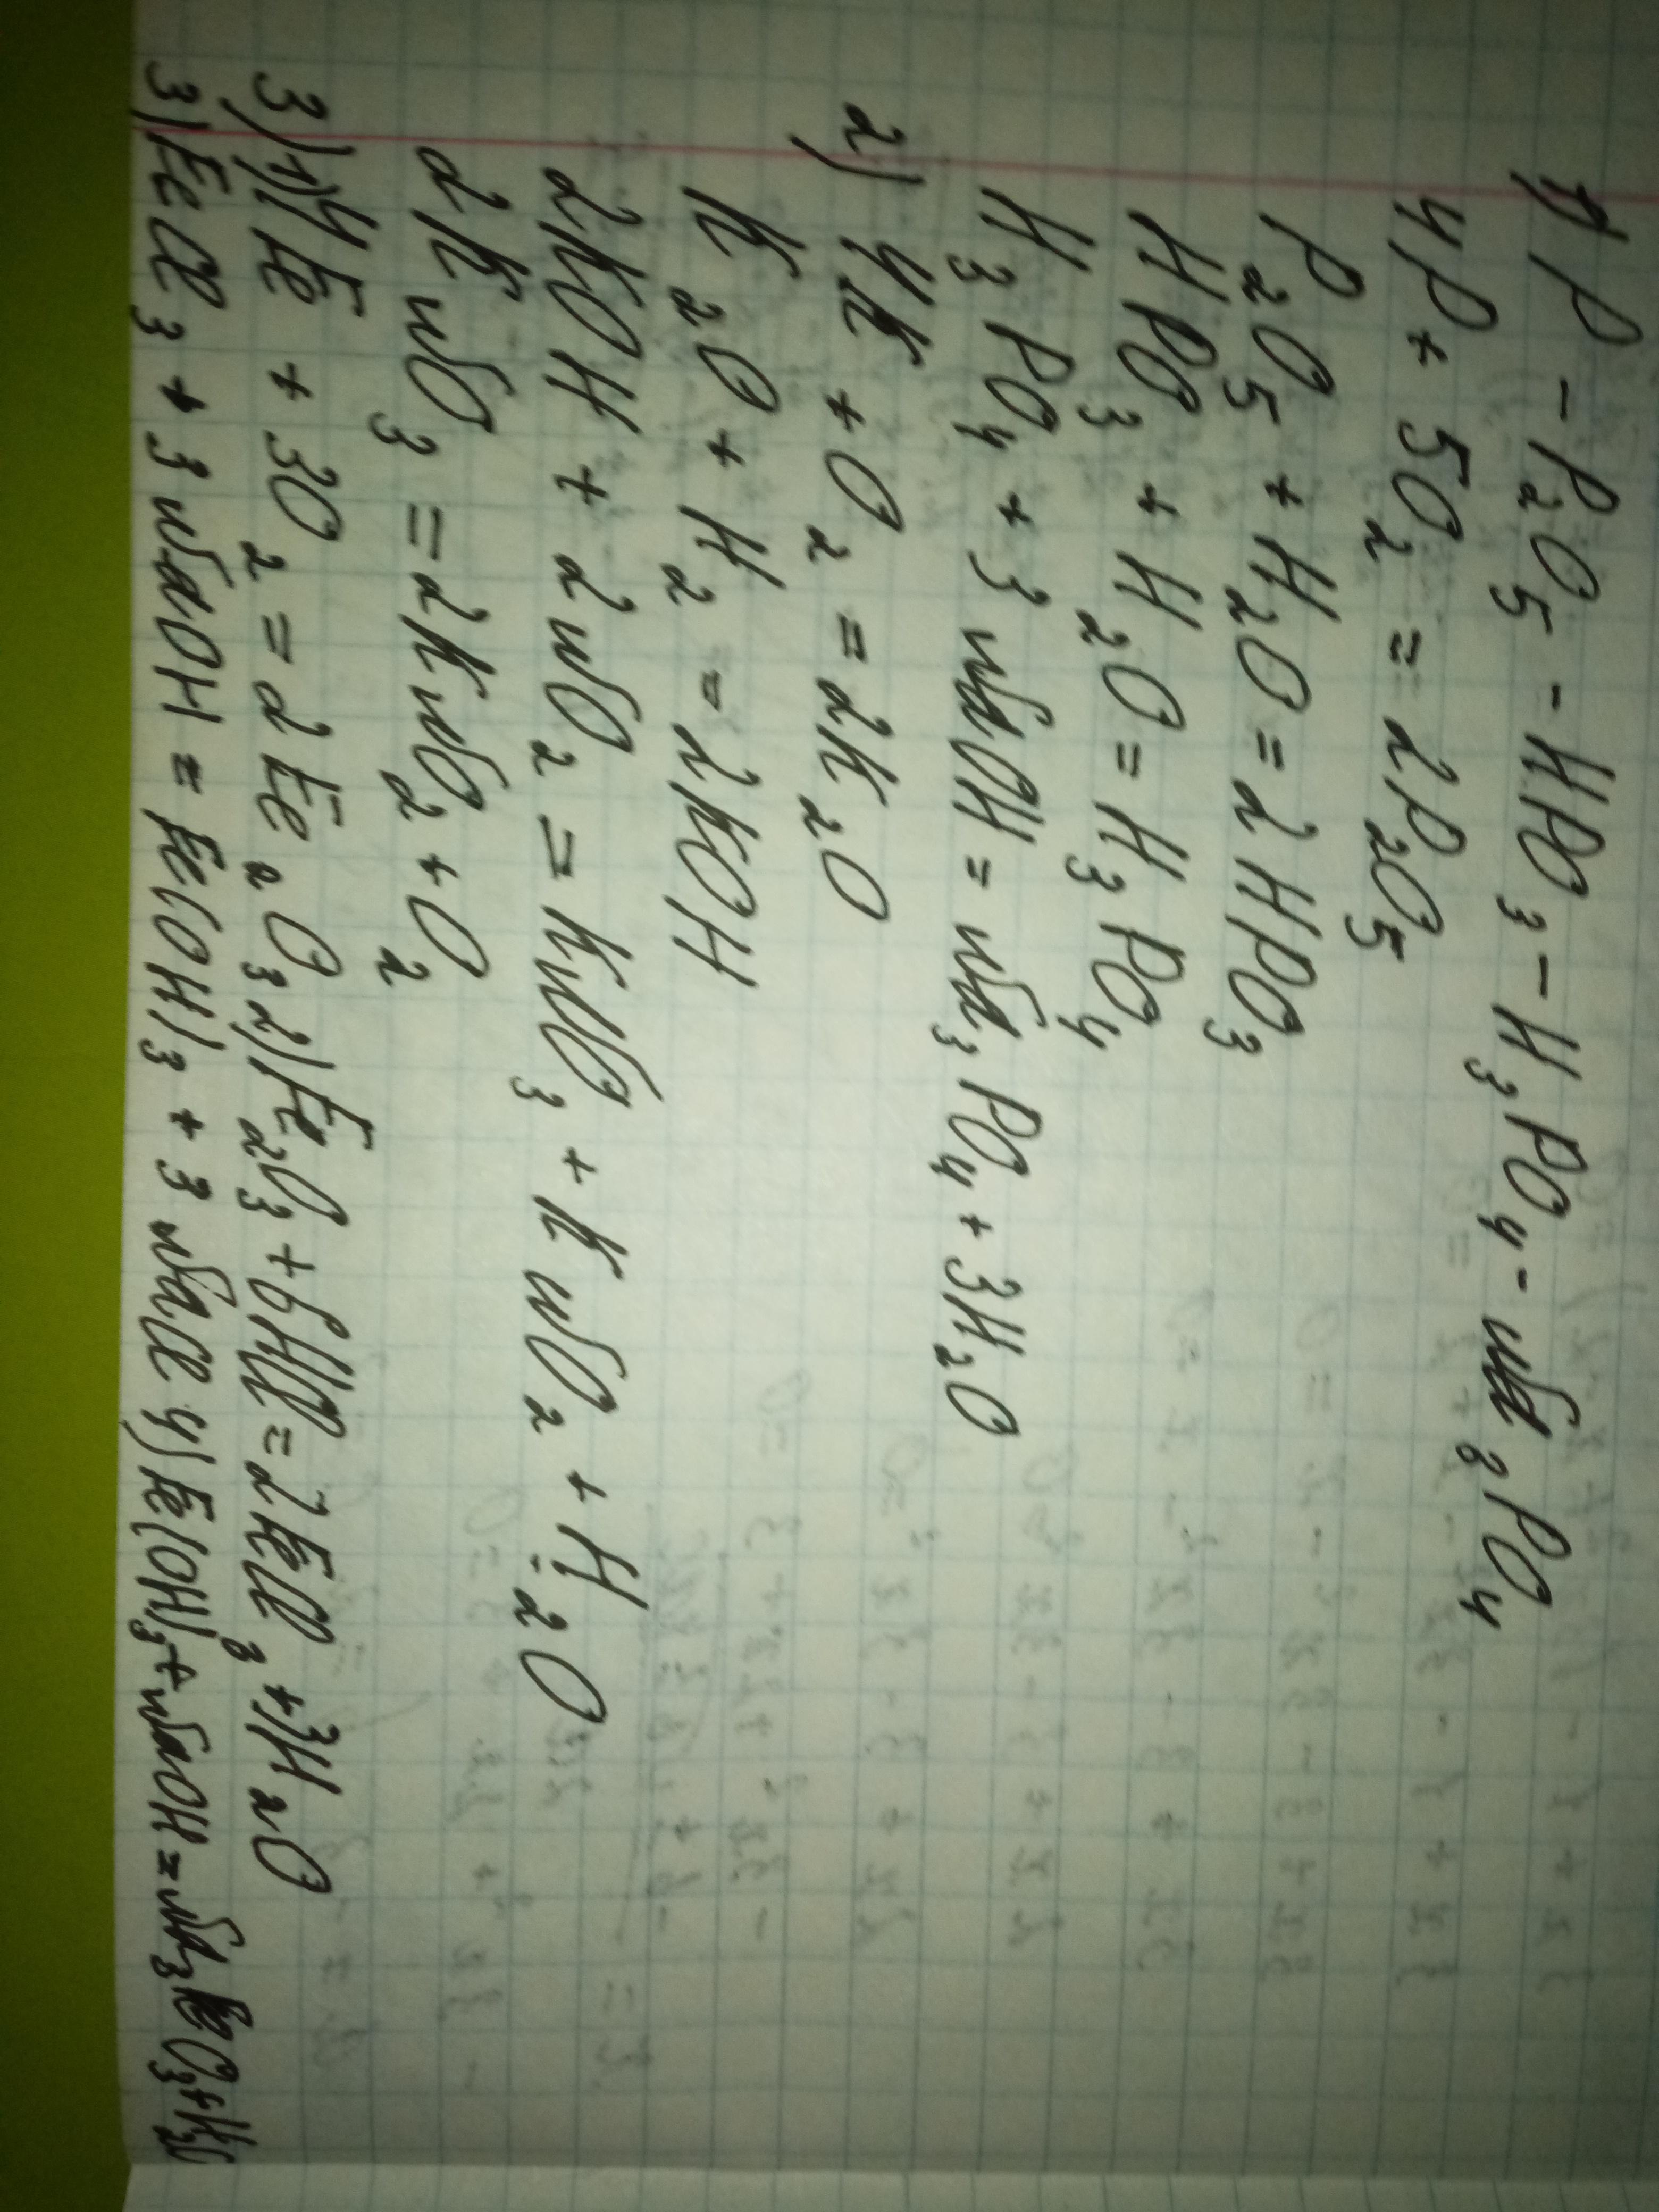 1) P - P₂O₅ - HPO₃ - H₃PO₄ - Na₃PO₄
4P + 5O₂ = 2P₂O₅
P₂O₅ + H₂O = 2HPO₃
HPO₃ + H₂O = H₃PO₄
H₃PO₄ + 3NaOH = Na₃PO₄ + 3H₂O
2) 4K + O₂ = 2K₂O
K₂O + H₂ = 2KOH
2KOH + 2NO₂ = KNO₃ + KNO₂ + H₂O
2KNO₃ = 2KNO₂ + O₂
3) 1) 4Fe + 3O₂ = 2Fe₂O₃ 2) Fe₂O₃ + 6HCl = 2FeCl₃ + 3H₂O
3) FeCl₃ + 3NaOH = Fe(OH)₃ + 3NaCl 4) Fe(OH)₃ + NaOH = Na₃FeO₃ +